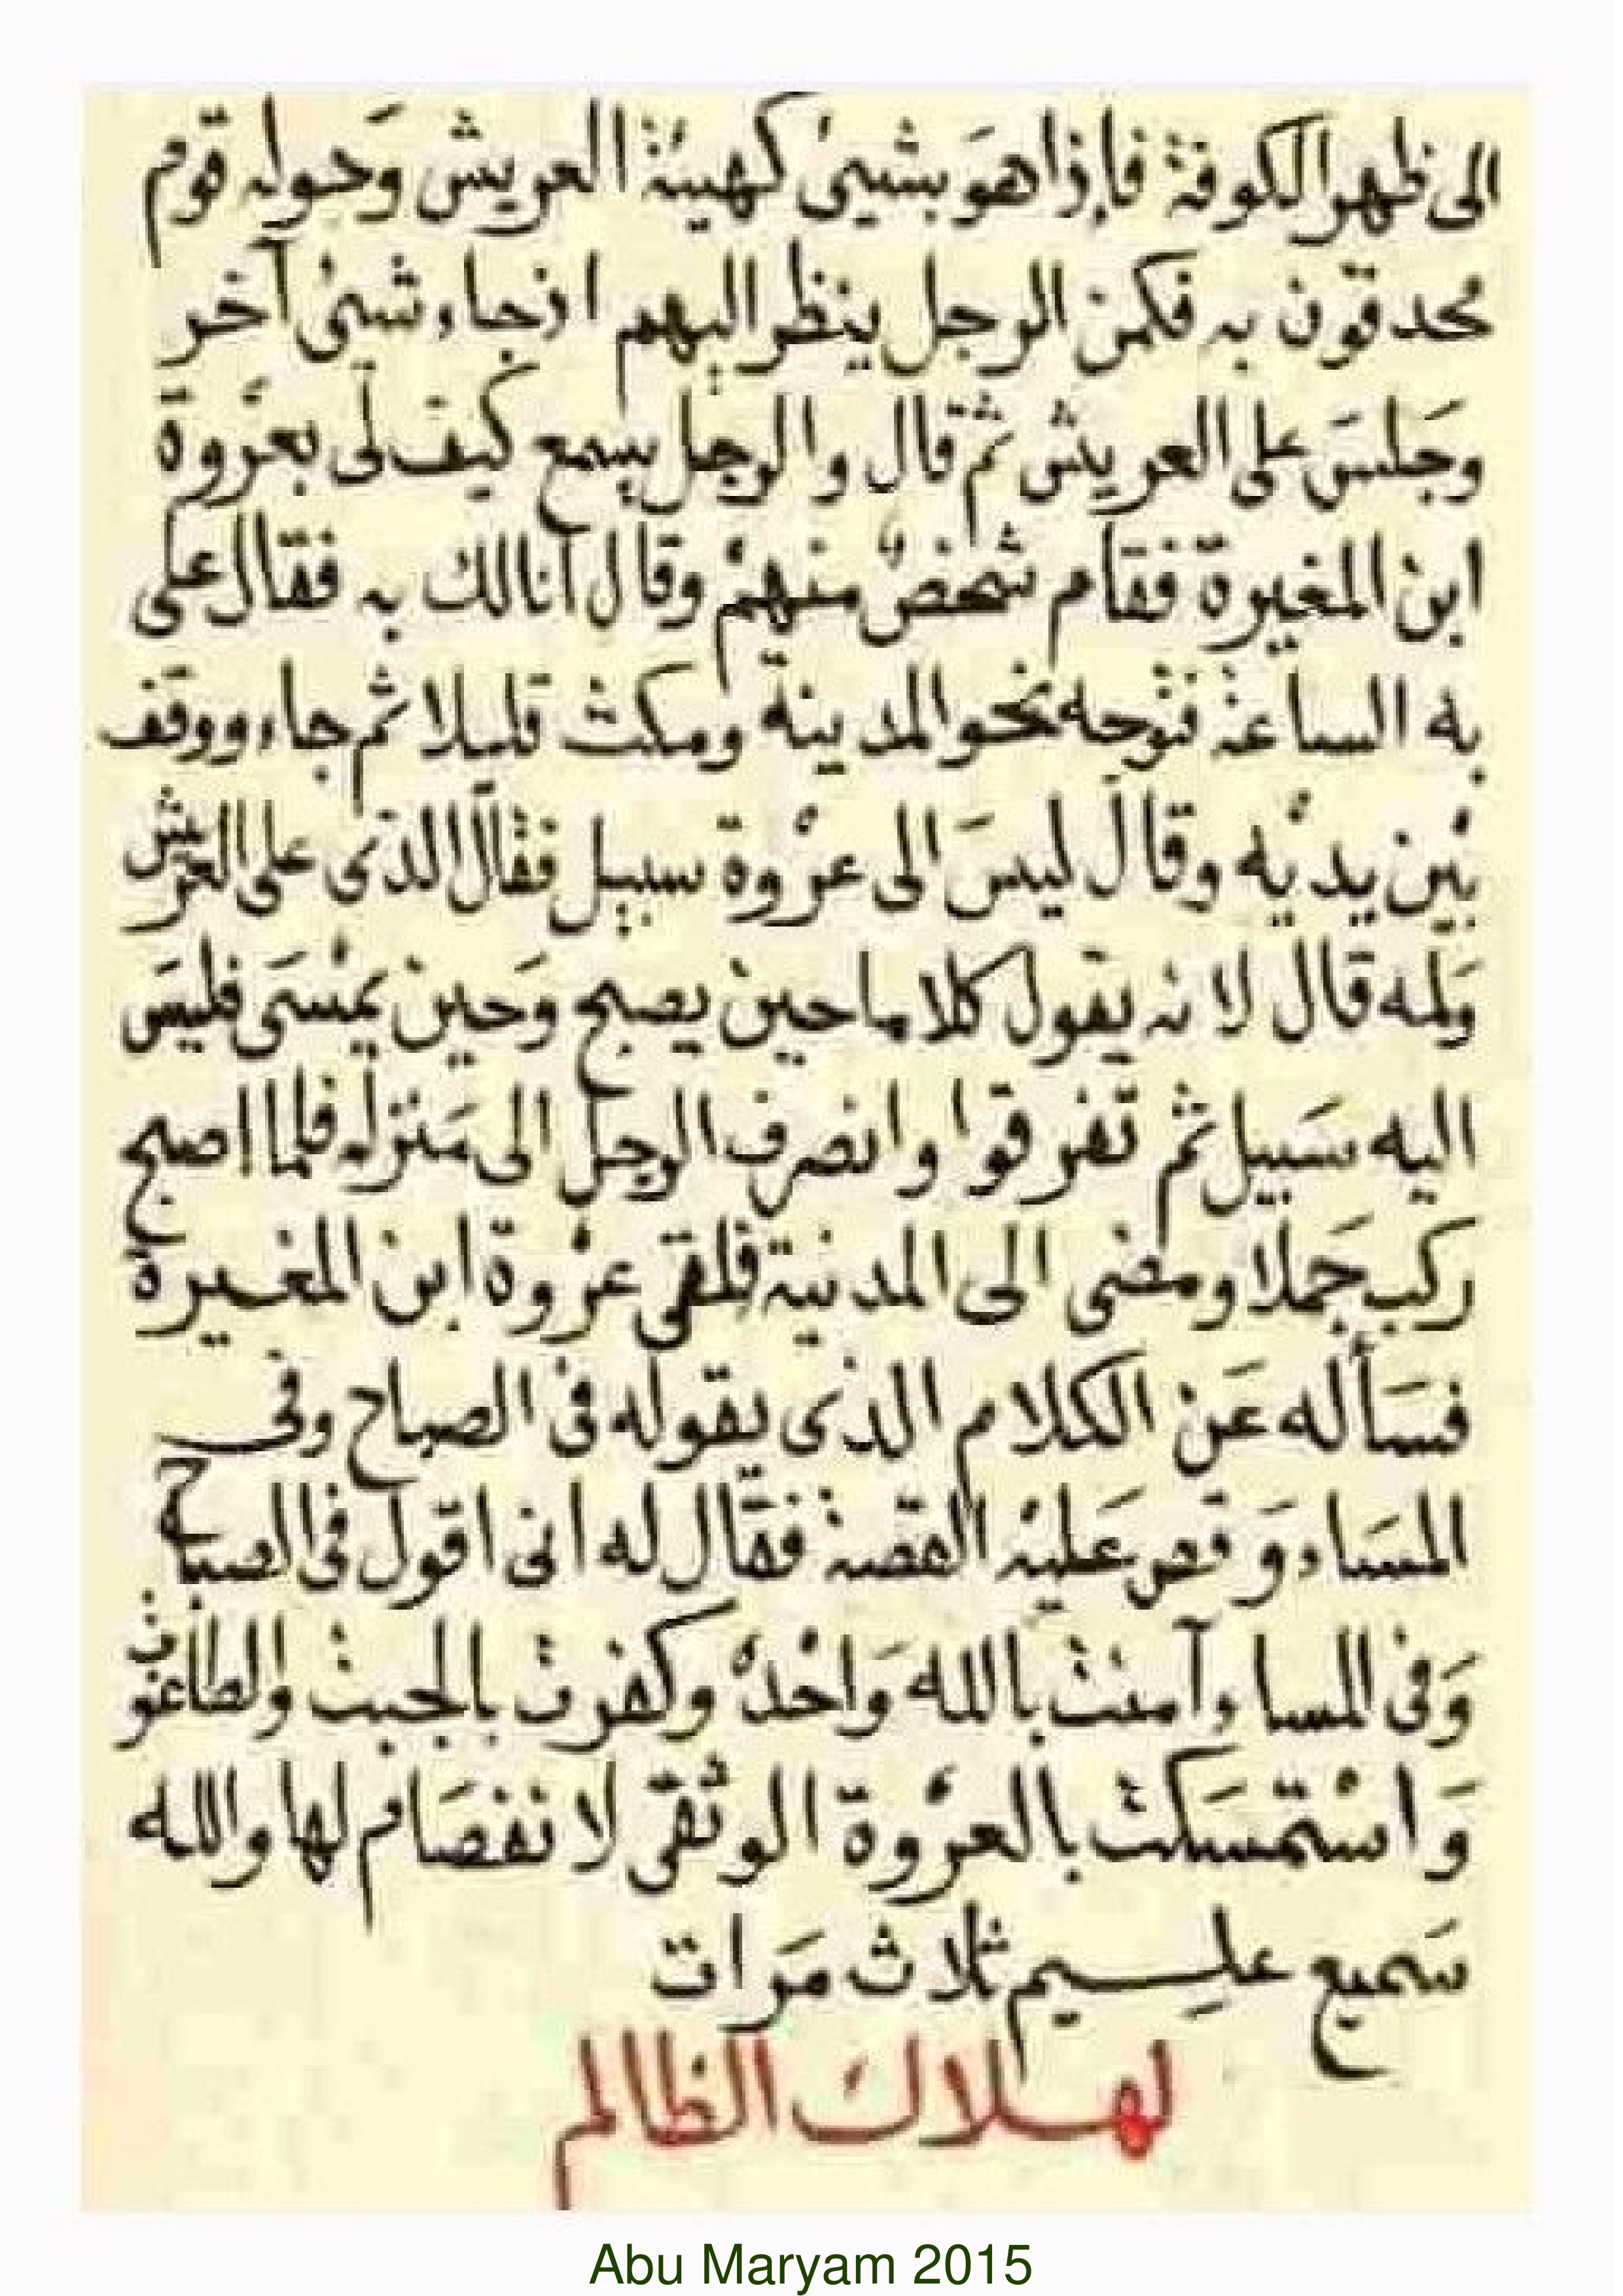 الى ظهر الكوفة فاذا هوَ بشيئ كهيئة العريش وَحوله قوم
محدقون به فكمن الرجل ينظر اليهم اذ جاء شئ آخر
وجلسَ على العريش ثم قال والرجل يسمع كيف لى بعروة
ابن المغيرة فقام شخص منهم وقال انا لك به فقال على
به الساعة فتوجه نحو المدينة ومكث قليلا ثم جاء ووقف
بين يديه وقال ليسَ الى عروة سبيل فقال الذى على العريش
وَلمه قال لانه يقول كلاما حين يصبح وَحين يمسى فليسَ
اليه سَبيل ثم تفرقوا وانصرف الرجل الى مَنزله فلما اصبح
ركب جَملا ومضى الى المدنية فلقى عروة ابن المغيرة
فسَأله عَن الكلام الذى يقوله فى الصباح وفى
المسَاء وَقص عَليه القصة فقال له انى اقول فى الصباح
وَفى المساء آمنت بالله وَاحده وكفرت بالجبت والطاغوت
وَاستمسَكت بالعروة الوثقى لانفصَام لها والله
سَميع عليم ثلاث مَرات
لهلاك الظالم
Abu Maryam 2015